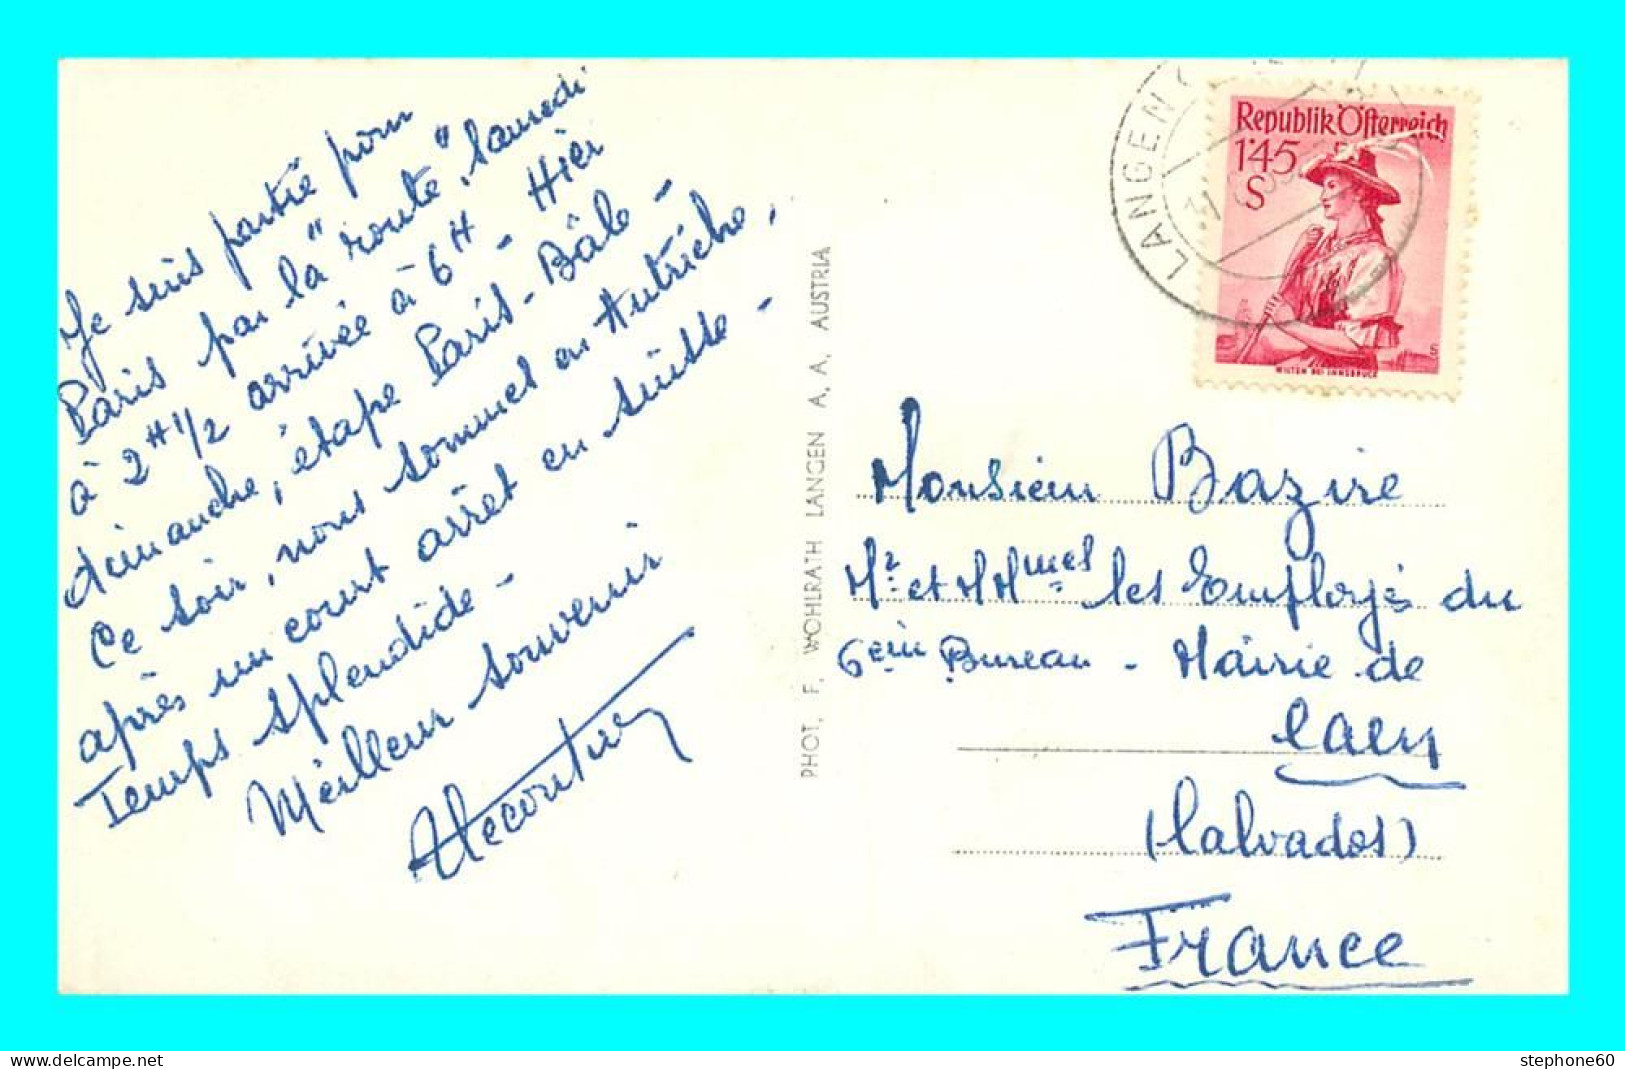 Je suis partie pour
Paris par la "route", samedi
à 2H 1/2 arrivée à 6H - Hier
dimanche, étape Paris - Bâle -
Ce soir, nous sommes en Autriche,
après un court arrêt en suisse -
Temps splendide -
Meilleur souvenir
PHOT. F. WOHLRATH LANGEN A. A. AUSTRIA
LANGEN
Republik Österreich
1'45
S
WILTEN BEI INNSBRUCK
Monsieur Bazire
Mr et MMmes les Employés du
6em Bureau - Mairie de
Caen
(Calvados)
France
stephone60